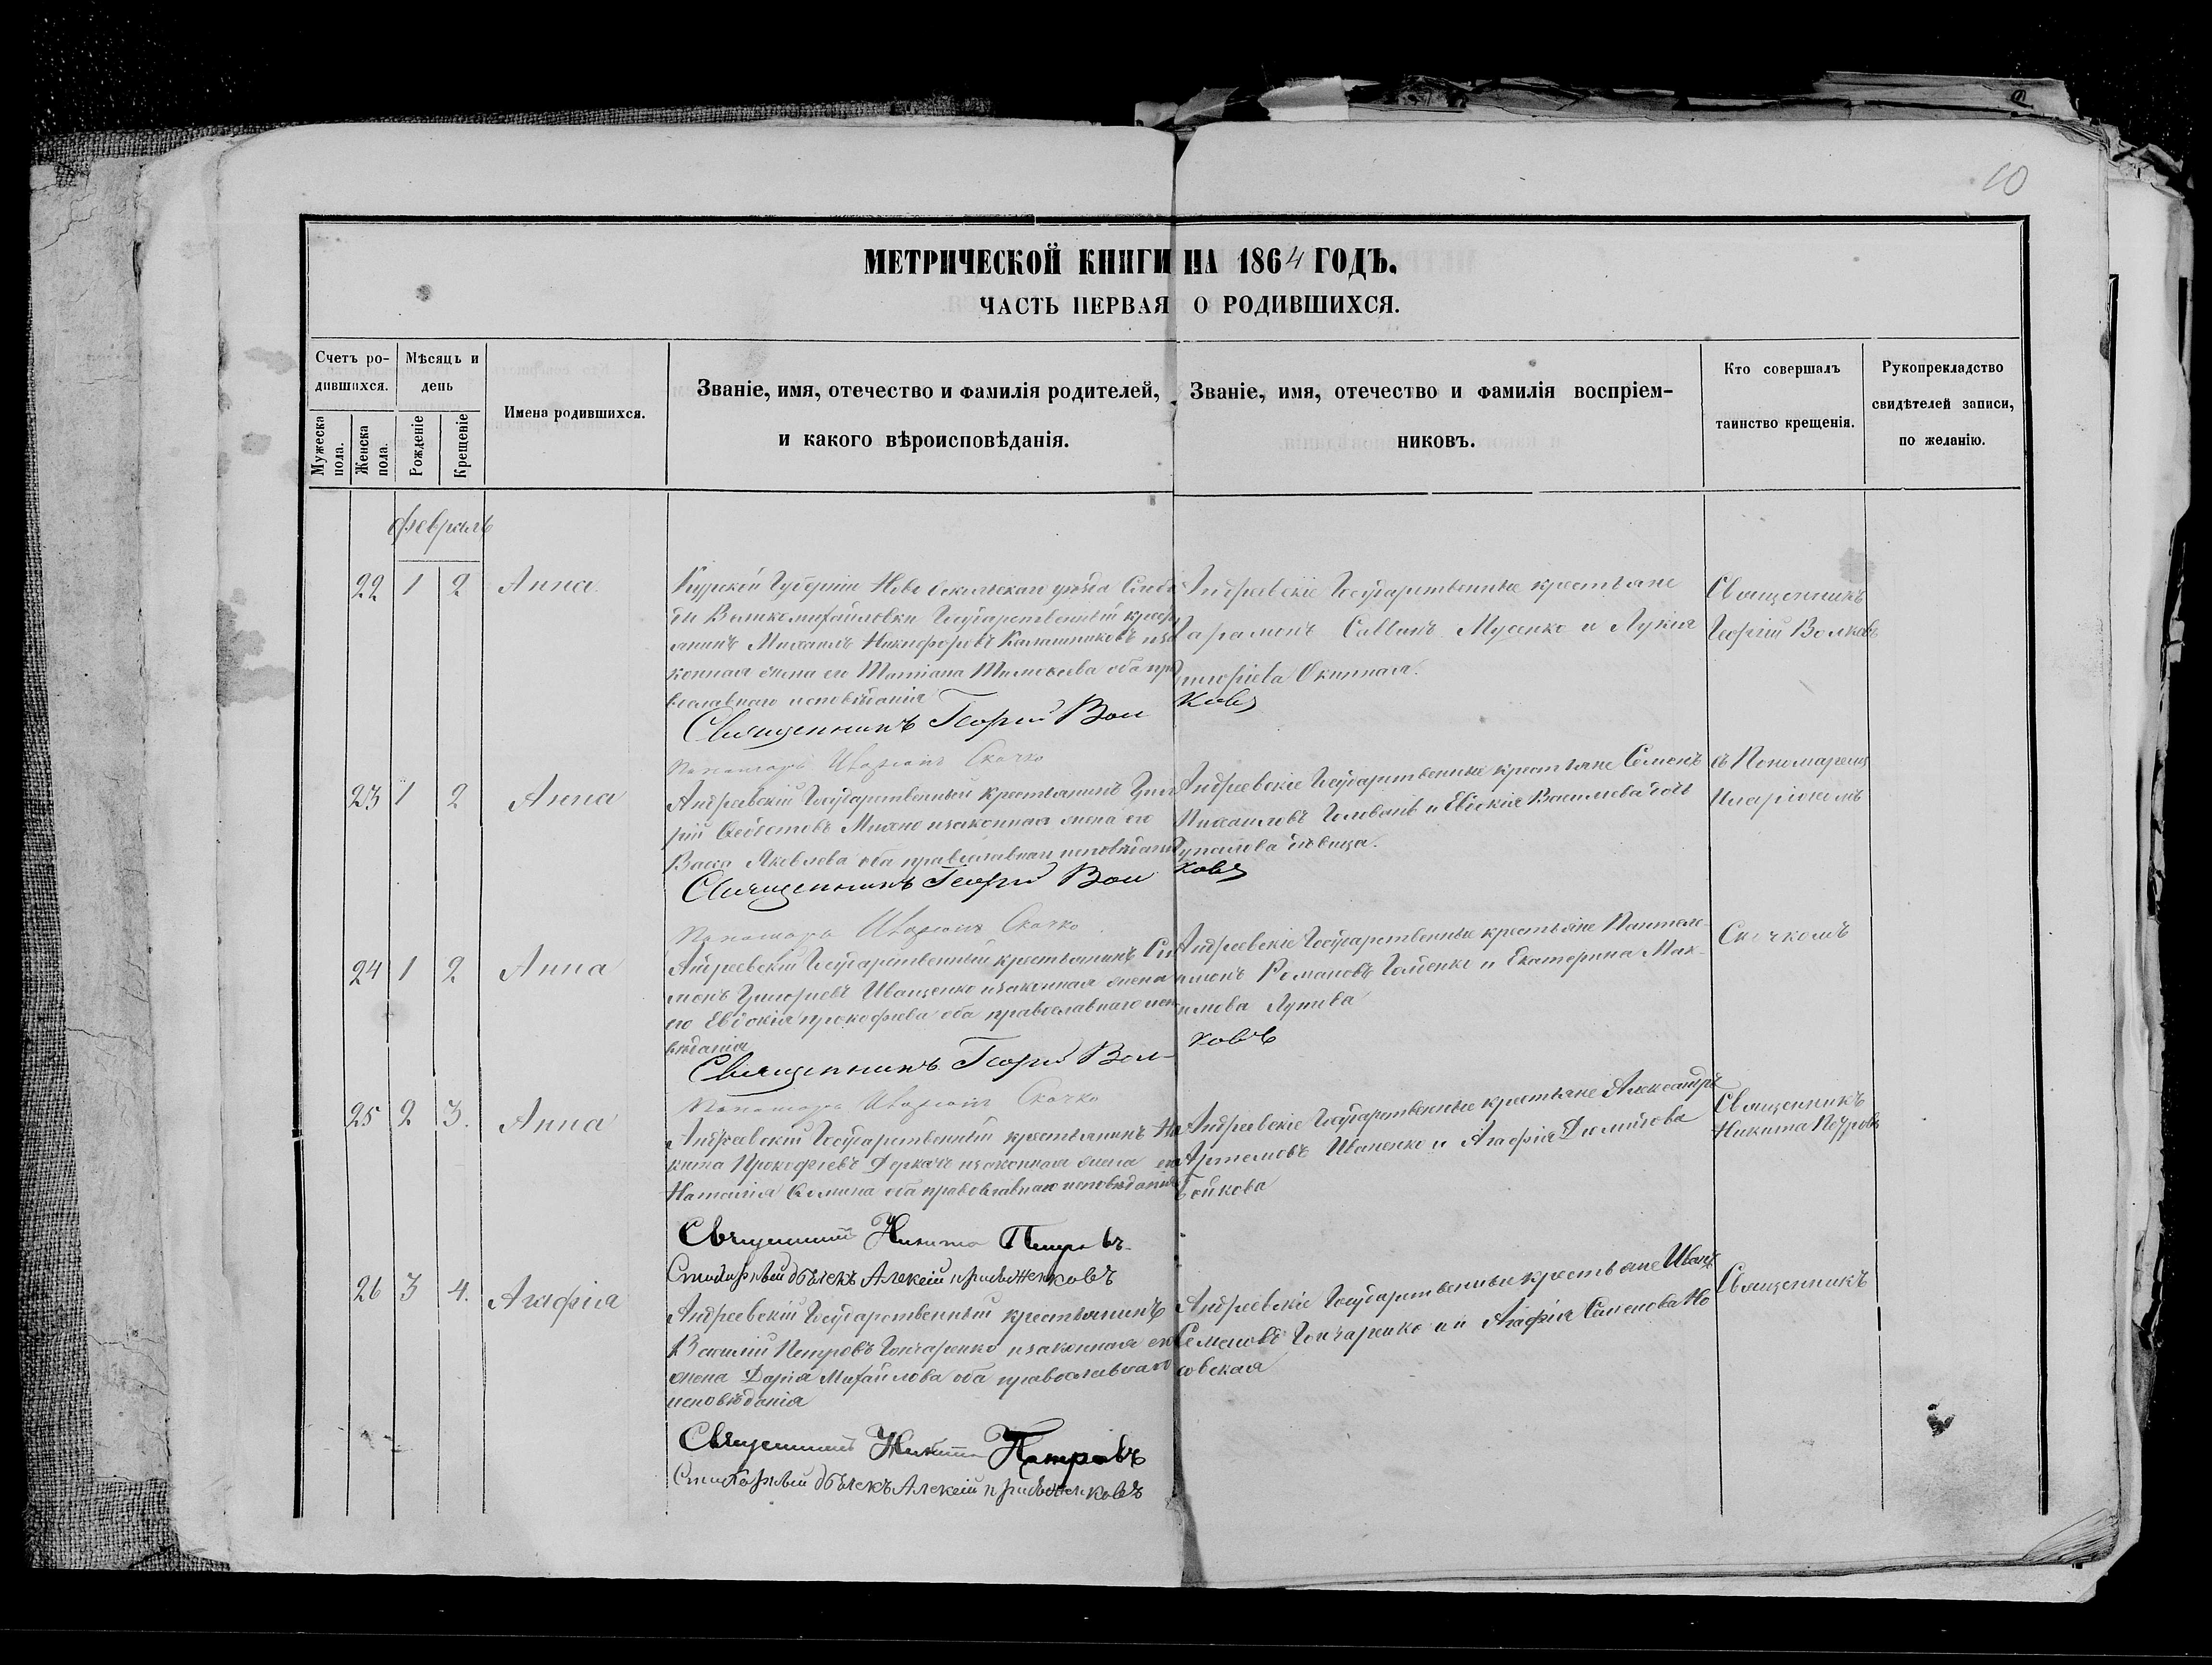 10
МЕТРИЧЕСКОЙ КНИГИ НА 1864 ГОДЪ.
ЧАСТЬ ПЕРВАЯ О РОДИВШИХСЯ.
Счетъ ро-
дившихся.
Мужеска
пола.
Женска
пола.
Мѣсяцъ и
день
Рожденіе
Крещеніе
Имена родившихся.
Званіе, имя, отечество и фамилія родителей,
и какого вѣроисповѣданія.
Званіе, имя, отечество и фамилія воспріем-
никовъ.
Кто совершалъ
таинство крещенія.
Рукоприкладство
свидѣтелей записи,
по желанію.
февраль
22 1 2 Анна
Курской Губерніи Ново Оскольскаго уѣзда Слобо
ды Великомихайловки Государственный крест
янинъ Михаилъ Никифоровъ Калашниковъ иза
конная жена его Татіана оба пра
вославнаго исповѣданія
Священникъ Георгій Вол
ковъ
Пономарь Иларіонъ Скочко
Андреевскіе Государственные крестьяне
Саввинъ Мусенко и Лукія
Григоріева
Священникъ
Георгій Волковъ
23 1 2 Анна
Андреевскій Государственный крестьянинъ Григо
рій Федотовъ изаконная жена его
Васса Яковлева оба православнаго исповѣданія
Священникъ Георгій Вол
ковъ
Пономарь Иларіонъ Скочко
Андреевскіе Государственные крестьяне Семенъ
Михаиловъ Голованъ и Евдокія Васильева дочь
девица.
съ Пономаремъ
Иларіономъ
24 1 2 Анна
Андреевскій Государственный крестьянинъ Си
монъ Григорьевъ Иващенко изаконная жена
его Евдокія прокофіева оба православнаго испо
вѣданія
Священникъ Георгій Вол-
ковъ
Пономарь Иларіонъ Скочко
Андреевскіе Государственные крестьяне Пантеле-
имонъ Романовъ и Екатерина Мак-
симова
Скочкомъ
25 2 3. Анна
Андреевскій Государственный крестьянинъ Ни
кита Прокофіевъ Деркачъ изаконная жена его
Наталія Фомина оба православнаго исповѣданія
Священникъ Никита Петровъ
Стихарный дьячекъ Алексій
Андреевскіе Государственные крестьяне Александръ
Артемовъ Иваненко и Агафія Демидова
Бойкова
Священникъ
Никита Петровъ
26 3 4. Агафія
Андреевскій Государственный крестьянинъ
Василій Петровъ Гончаренко изаконная его
жена Дарія Михайлова оба православнаго
исповѣданія
Священникъ Никита Петровъ
Стихарный дьячекъ Алексій
Андреевскіе Государственные крестьяне Иванъ
Семеновъ Гончаренко и Агафія Семенова
Священникъ